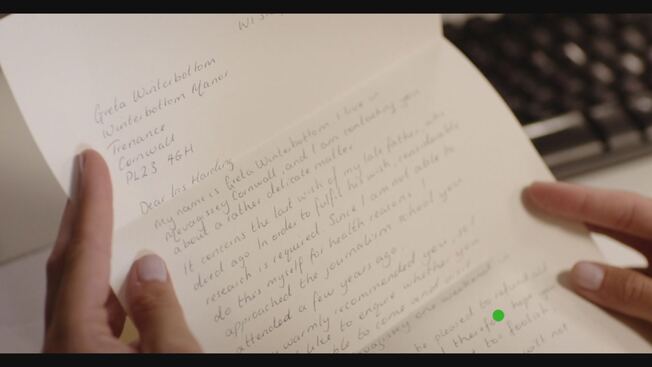 Greta Winterbottom
Winterbottom Manor
Trenance
Cornwall
PL23 4GH
Dear Iris Harding
My name is Greta Winterbottom, I live in
Mevagissey Cornwall, and I am contacting you
about a rather delicate matter.
It concerns the last wish of my late father, who
died ago. In order to fulfil his wish, considerable
research is required. Since I am not able to
do this myself for health reasons I
approached the journalism school you
attended a few years ago.
warmly recommended you, so I
like to enquire whether you
able to come and
one weekend
be pleased to refund all
therefore hope you
too foolish,
will not